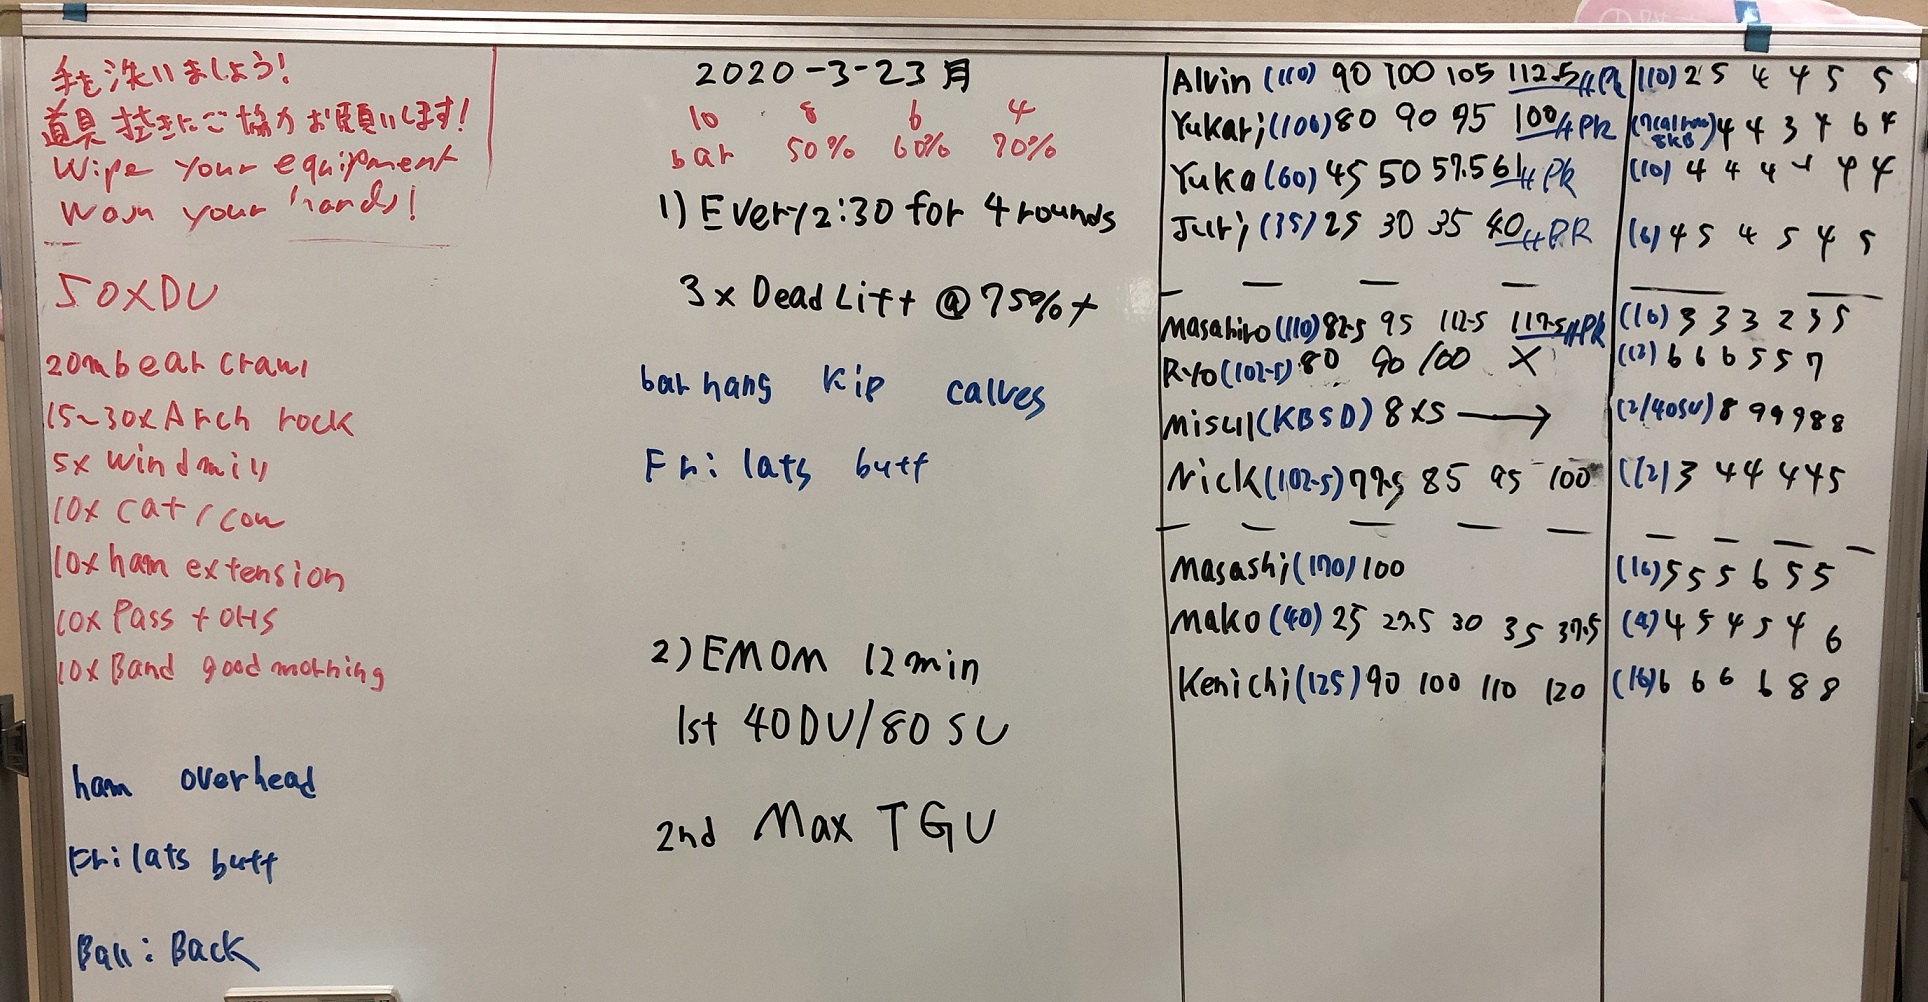 手を洗いましょう!
道具拭きにご協力お願いします!
Wipe your equipment
Wash your hands!
50xDU
20m bear crawl
15~30x Arch rock
5x windmill
10x cat/cow
10x ham extension
10x Pass + OHS
10x Band good morning
ham overhead
Fri: lats butt
Ball: Back
2020-3-23月
10 8 6 4
bar 50% 60% 70%
1) Every 2:30 for 4 rounds
3x Dead Lift @75%+
bar hang kip calves
Fri: lats butt
2) EMOM 12min
1st 40DU/80SU
2nd Max TGU
Alvin (110) 90 100 105 112.5 PR (10) 2 5 4 4 5 5
Yukari (106) 80 90 95 100 PR 8KB) 4 4 3 4 6 4
Yuka (60) 45 50 57.5 61 PR (10) 4 4 4 4 4 4
Juri (35) 25 30 35 40 PR (6) 4 5 4 5 4 5
Masahiro (110) 82.5 95 112.5 117.5 PR (16) 3 3 3 2 3 5
Ryo (102.5) 80 90 100 X (12) 6 6 6 5 5 7
(KBSD) 8x5 → (2/40SU) 8 9 9 9 8 8
Nick (102.5) 77.5 85 95 100 (12) 3 4 4 4 4 5
Masashi (170) 100 (16) 5 5 5 6 5 5
Mako (40) 25 27.5 30 35 37.5 (4) 4 5 4 5 4 6
Kenichi (125) 90 100 110 120 (16) 6 6 6 6 8 8